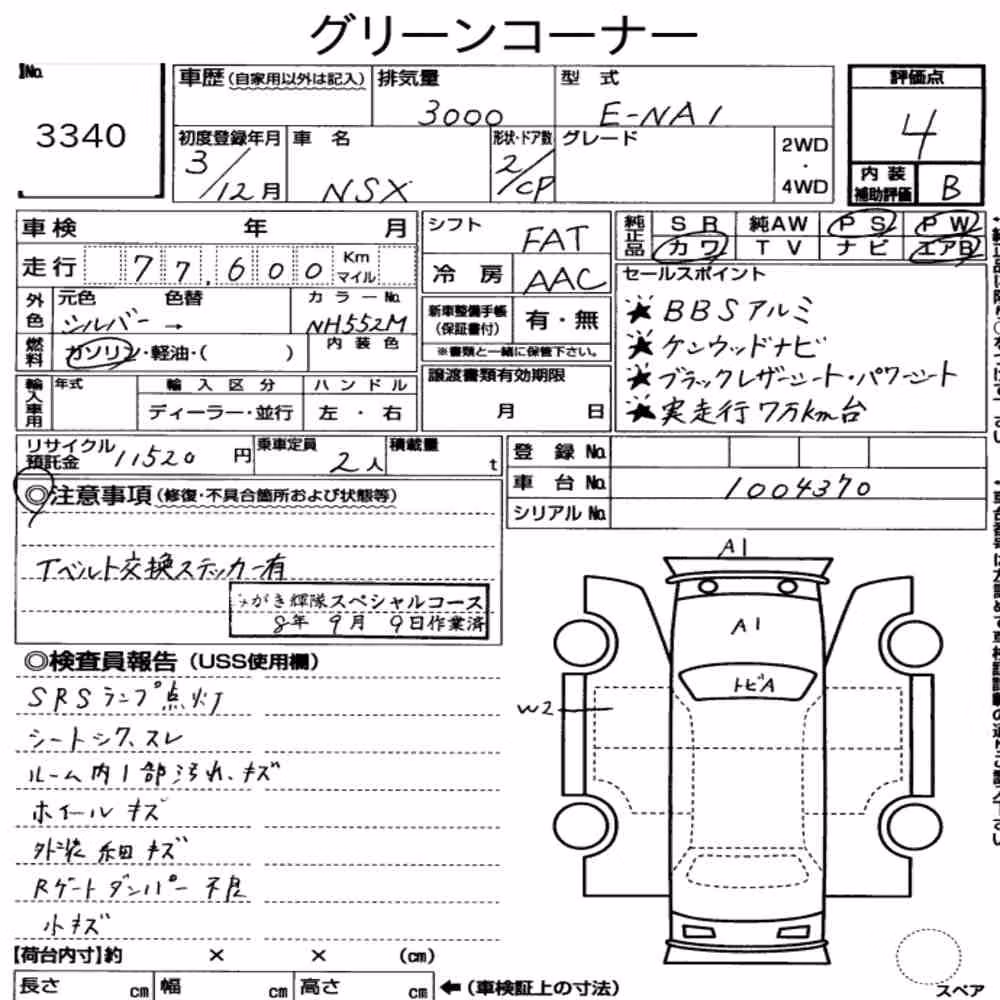 グリーンコーナー
No. 3340
車歴(自家用以外は記入) 排気量 3000 型式 E-NA1 評価点 4
初度登録年月 3/12月 車名 NSX 形状・ドア数 2/CP グレード 2WD・4WD 内装補助評価 B
車検 年 月 シフト FAT 純正品 SR 純AW PS PW
走行 77,600 Km マイル 冷房 AAC カワ TV ナビ エアB
外色 元色 シルバー → 色替 カラーNo. NH552M 新車整備手帳(保証書付) 有・無
※書類と一緒に保管下さい。
燃料 ガソリン・軽油・( ) 内装色
セールスポイント
★BBSアルミ
★ケンウッドナビ
★ブラックレザーシート・パワーシート
★実走行7万km台
輸入車用 年式 輸入区分 ディーラー・並行 ハンドル 左・右 譲渡書類有効期限 月 日
リサイクル預託金 11520円 乗車定員 2人 積載量 t
登録No.
車台No. 1004370
シリアルNo.
◎注意事項(修復・不具合箇所および状態等)
Tベルト交換ステッカー有
みがき輝隊スペシャルコース
8年 9月 9日作業済
◎検査員報告(USS使用欄)
SRSランプ点灯
シートシワ、スレ
ルーム内1部汚れ、キズ
ホイールキズ
外装細キズ
Rゲートダンパー不良
小キズ
A1
A1
トビA
W2
【荷台内寸】約 × × (cm)
長さ cm 幅 cm 高さ cm ←(車検証上の寸法)
スペア